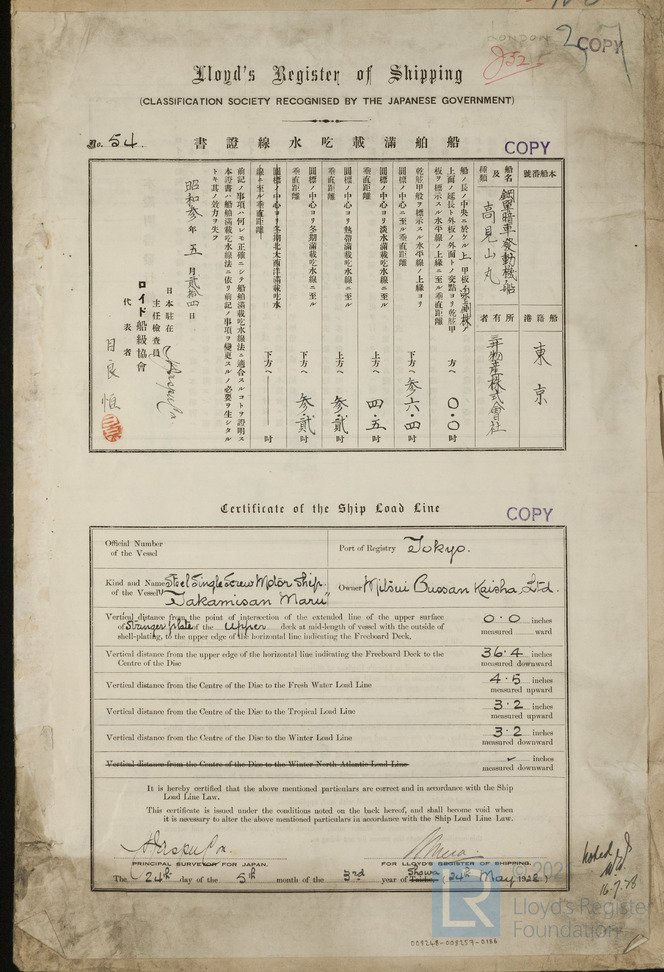 LONDON
COPY
Lloyd's Register of Shipping
(CLASSIFICATION SOCIETY RECOGNISED BY THE JAPANESE GOVERNMENT)
No. 54.
書證線水吃載滿舶船
COPY
本船番號
船名及種類
鋼單暗車發動機船
高見山丸
船籍港
東京
所有者
三井物産株式會社
方へ 〇・〇 吋
下方へ 参六・四 吋
圓標ノ中心ヨリ淡水滿載吃水線ニ至ル垂直距離
上方へ 四・五 吋
圓標ノ中心ヨリ熱帶滿載吃水線ニ至ル垂直距離
上方へ 参・貳 吋
圓標ノ中心ヨリ冬期滿載吃水線ニ至ル垂直距離
下方へ 参・貳 吋
圓標ノ中心ヨリ冬期北大西洋滿載吃水線ニ至ル垂直距離
下方へ 吋
昭和参年五月貳拾四日
日本駐在
主任檢查員
ロイド船級協會
代表者
Certificate of the Ship Load Line
COPY
Official Number of the Vessel
Port of Registry Tokyo.
Kind and Name of the Vessel Steel Single Screw Motor Ship. "Takamisan Maru"
Owner Mitsui Bussan Kaisha, Ltd.
Vertical distance from the point of intersection of the extended line of the upper surface
of Stringer plate of the Upper deck at mid-length of vessel with the outside of
shell-plating, to the upper edge of the horizontal line indicating the Freeboard Deck.
0.0 inches
measured ward
Vertical distance from the upper edge of the horizontal line indicating the Freeboard Deck to the
Centre of the Disc
36.4 inches
measured downward
Vertical distance from the Centre of the Disc to the Fresh Water Load Line
4.5 inches
measured upward
Vertical distance from the Centre of the Disc to the Tropical Load Line
3.2 inches
measured upward
Vertical distance from the Centre of the Disc to the Winter Load Line
3.2 inches
measured downward
Vertical distance from the Centre of the Disc to the Winter North Atlantic Load Line
inches
measured downward
It is hereby certified that the above mentioned particulars are correct and in accordance with the Ship
Load Line Law.
This certificate is issued under the conditions noted on the back hereof, and shall become void when
it is necessary to alter the above mentioned particulars in accordance with the Ship Load Line Law.
PRINCIPAL SURVEYOR FOR JAPAN.
FOR LLOYD'S REGISTER OF SHIPPING.
The 24th day of the 5th month of the 3rd year of Showa (24th May 1928)
16.7.28
008248-008259-0186
LR
Lloyd's Register
Foundation